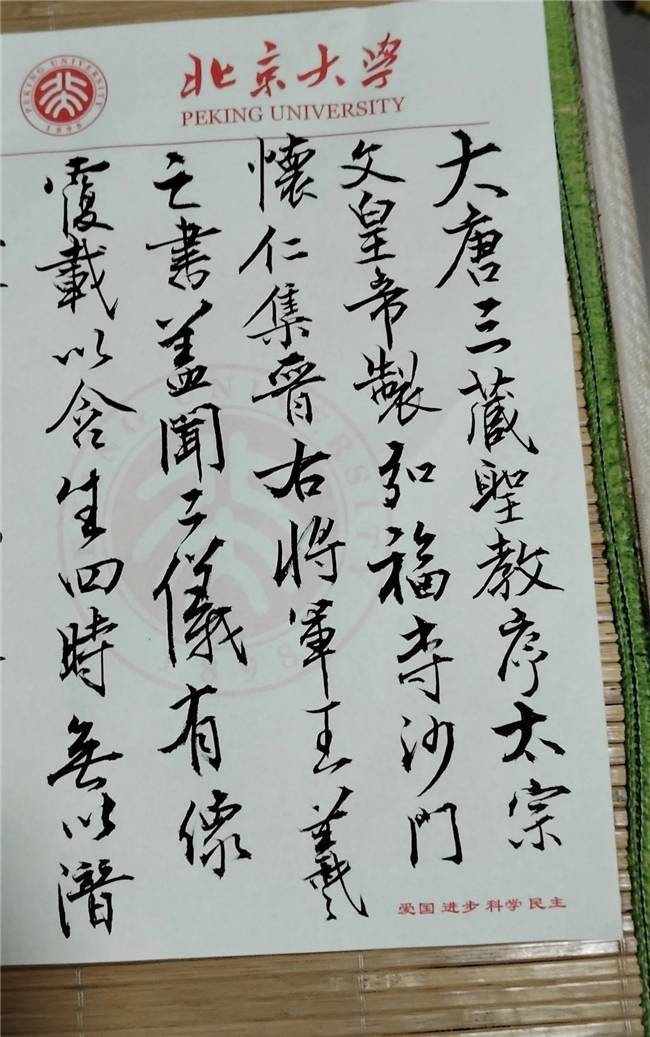 PEKING UNIVERSITY
1898
北京大學
PEKING UNIVERSITY
大唐三藏聖教序太宗
文皇帝製弘福寺沙門
懷仁集晉右將軍王羲
之書盖聞二儀有像
覆載以含生四時無以潛
爱国 进步 科学 民主